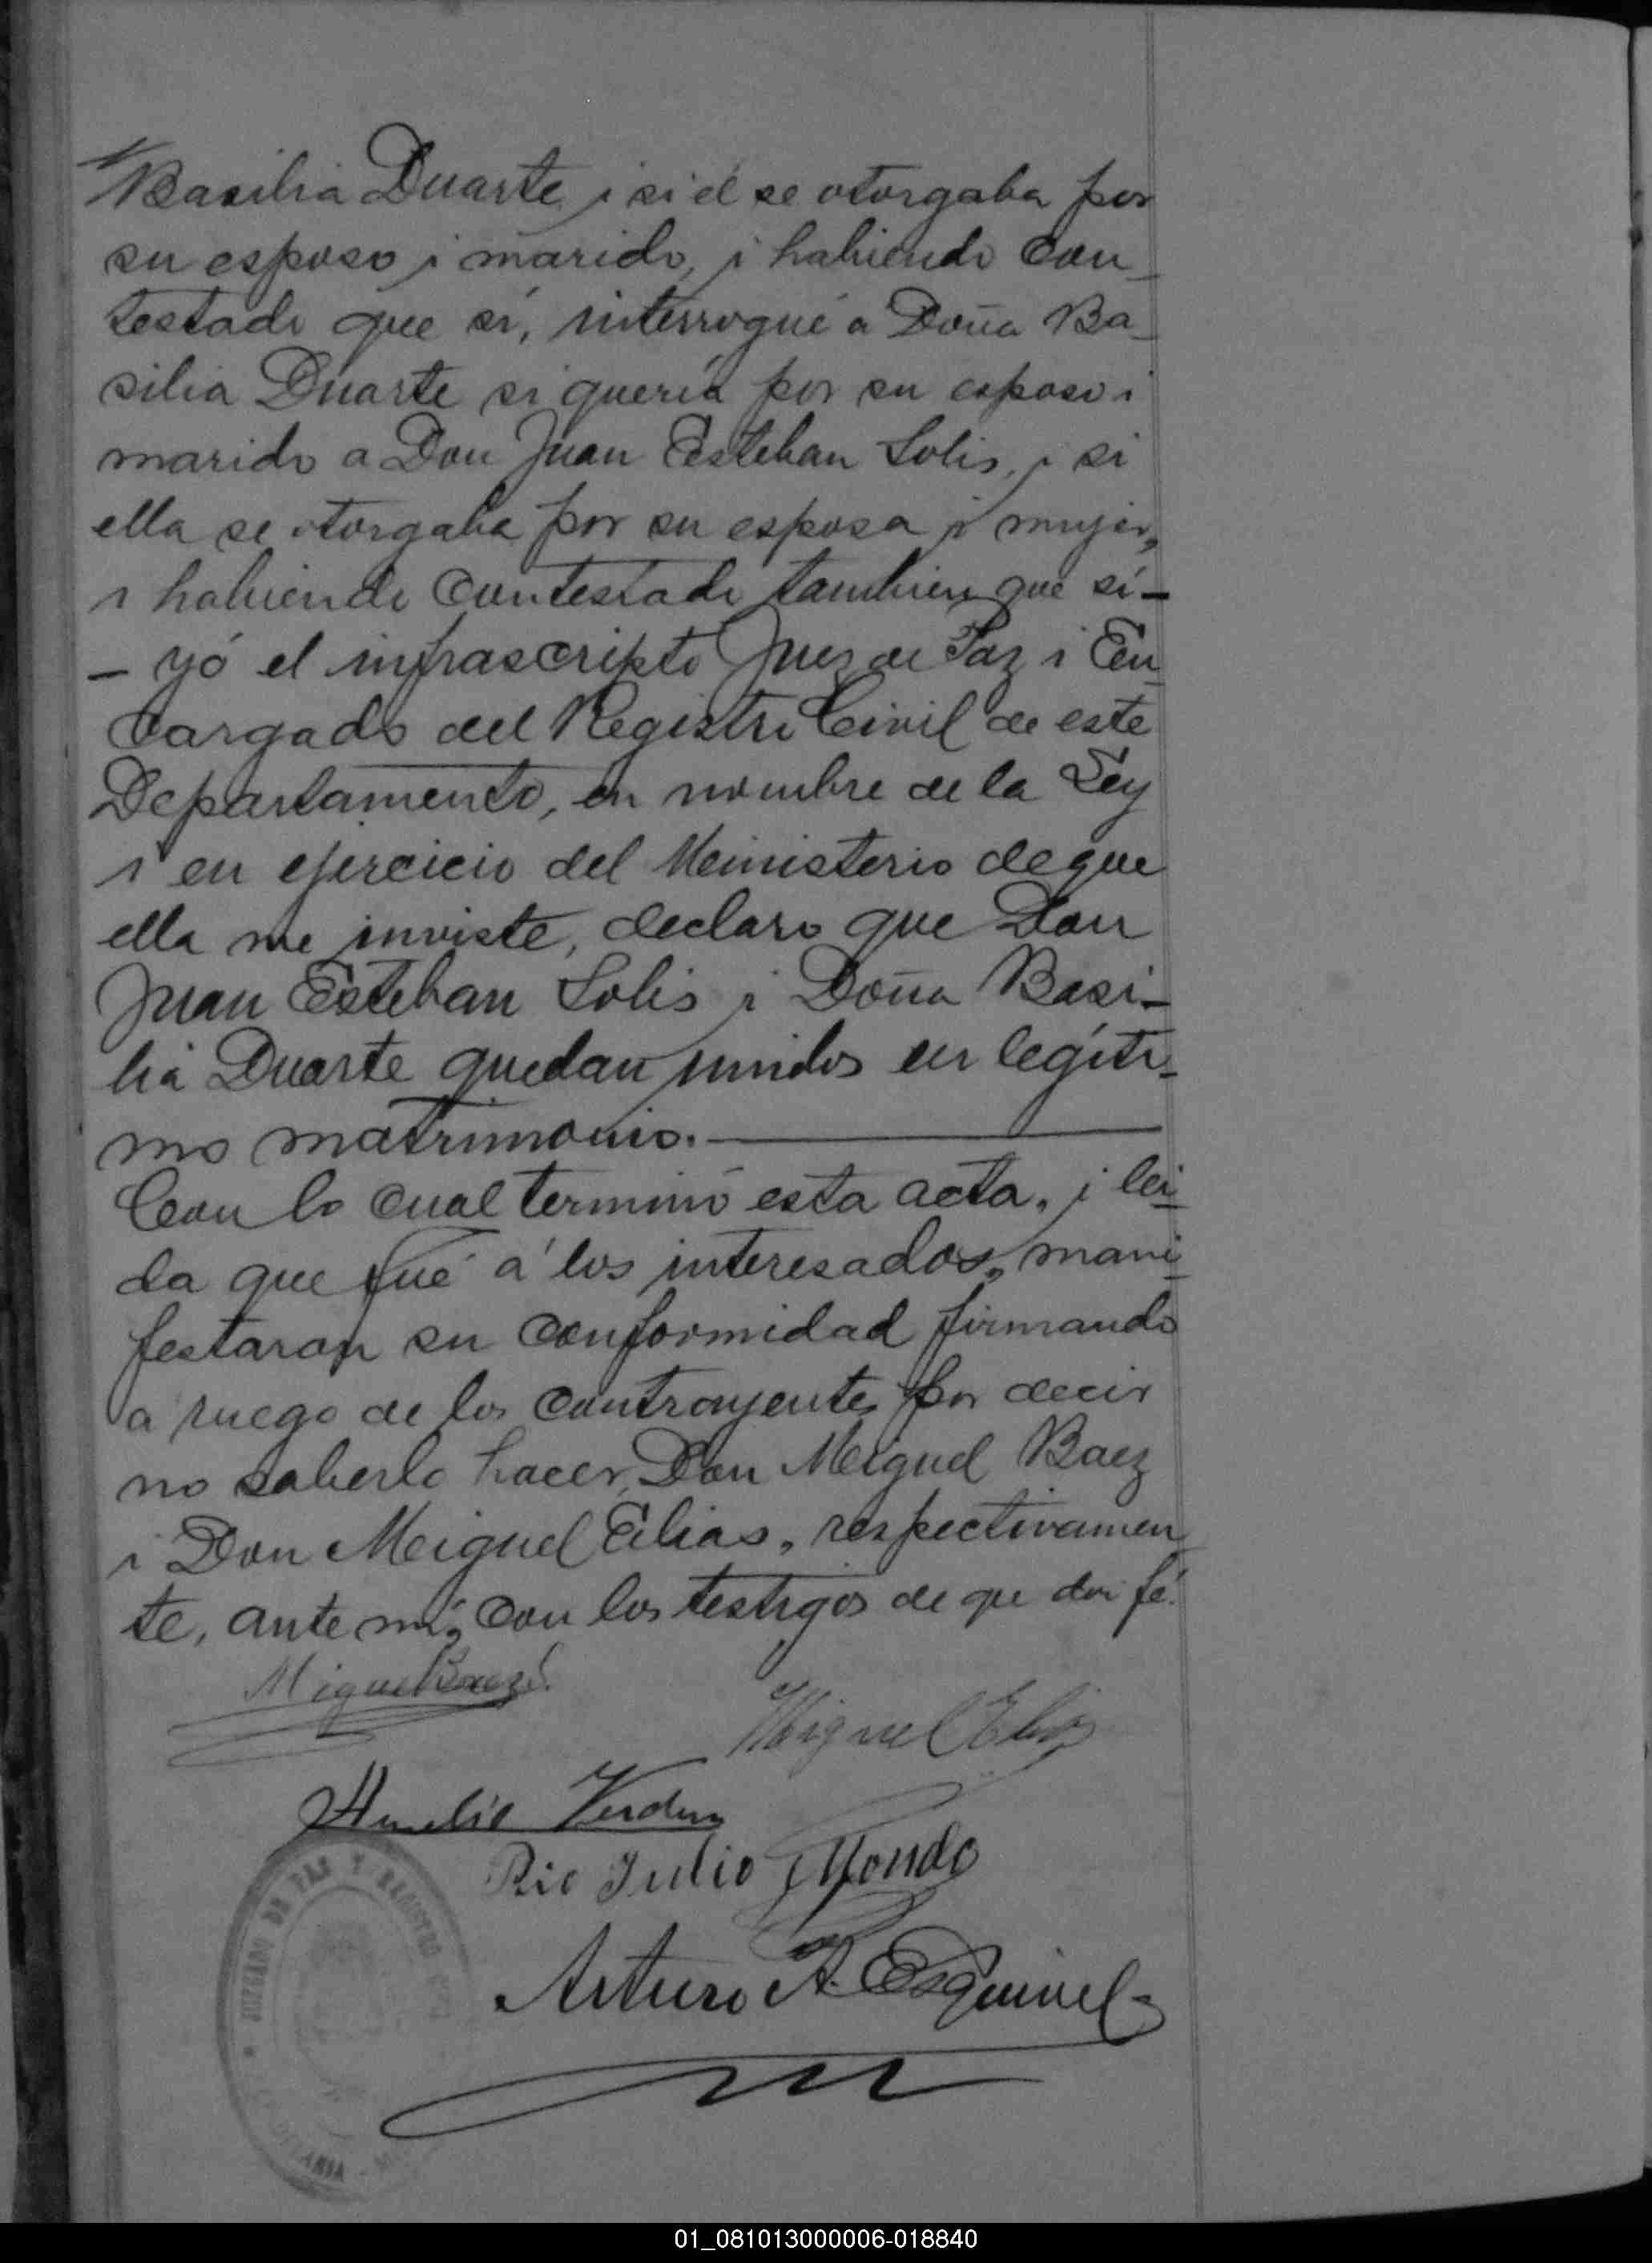 Basilia Duarte i si él se otorgaba por
su esposo i marido, i habiendo con_
testado que sí, interrogué a Doña Ba_
silia Duarte si quería por su esposo i
marido a Don Juan Esteban Solis, i si
ella se otorgaba por su esposa i mujer,
i habiendo contestado tambien que sí —
— yó el infrascripto Juez de Paz i En_
cargado del Registro Civil de este
Departamento, en nombre de la Ley
i en ejercicio del Ministerio de que
ella me inviste, declaro que Don
Juan Esteban Solis i Doña Basi_
lia Duarte quedan unidos en legíti_
mo matrimonio. —
Con lo cual terminó esta acta, i lei_
da que fué á los interesados, mani_
festaron su conformidad firmando
a ruego de los contrayentes por decir
no saberlo hacer, Don Miguel Baez
i Don Miguel Elias, respectivamen_
te, ante mí, con los testigos de que doi fé.
Miguel Baez
Miguel Elias
Aurelio Verdun
Rio Julio Mondo
Arturo A. Esquivel
JUZGADO DE PAZ Y REGISTRO
01_081013000006-018840